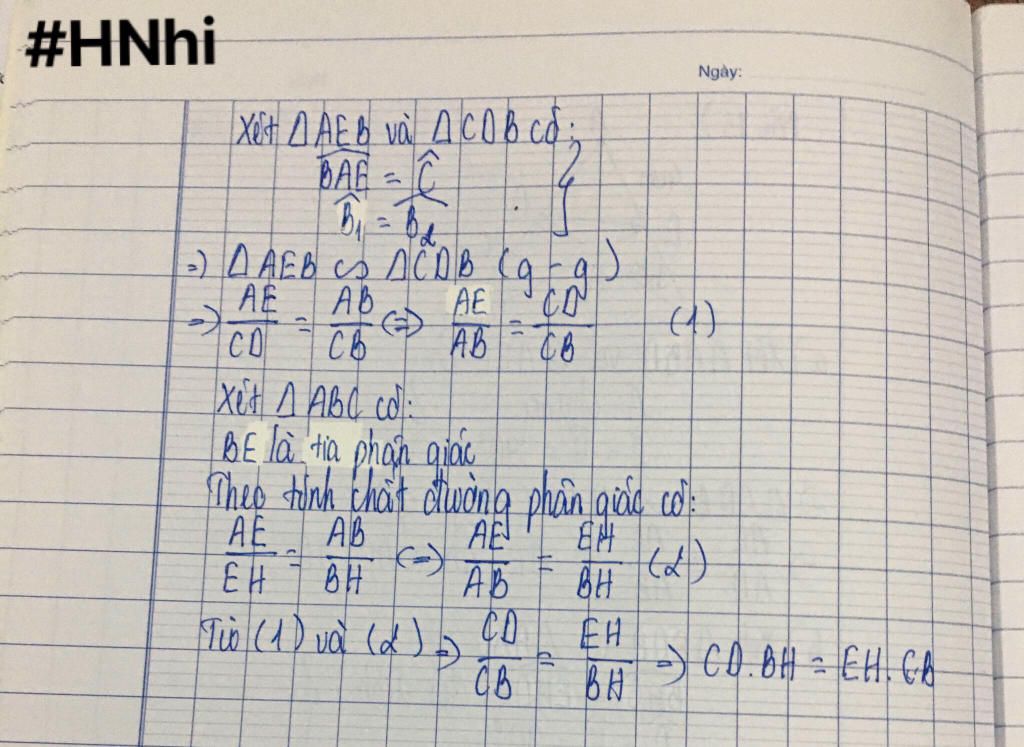 #HNhi
Ngày:
Xét Δ AEB và Δ CDB có:
BAE = Ĉ }
B̂₁ = B̂₂
=) Δ AEB ∽ Δ CDB (g - g)
=) AE/CD = AB/CB (=) AE/AB = CD/CB (1)
Xét Δ ABC có:
BE là tia phận giác
Theo tính chất đường phân giác có:
AE/EH = AB/BH (=) AE/AB = EH/BH (2)
Từ (1) và (2) =) CD/CB = EH/BH =) CD.BH = EH.CB